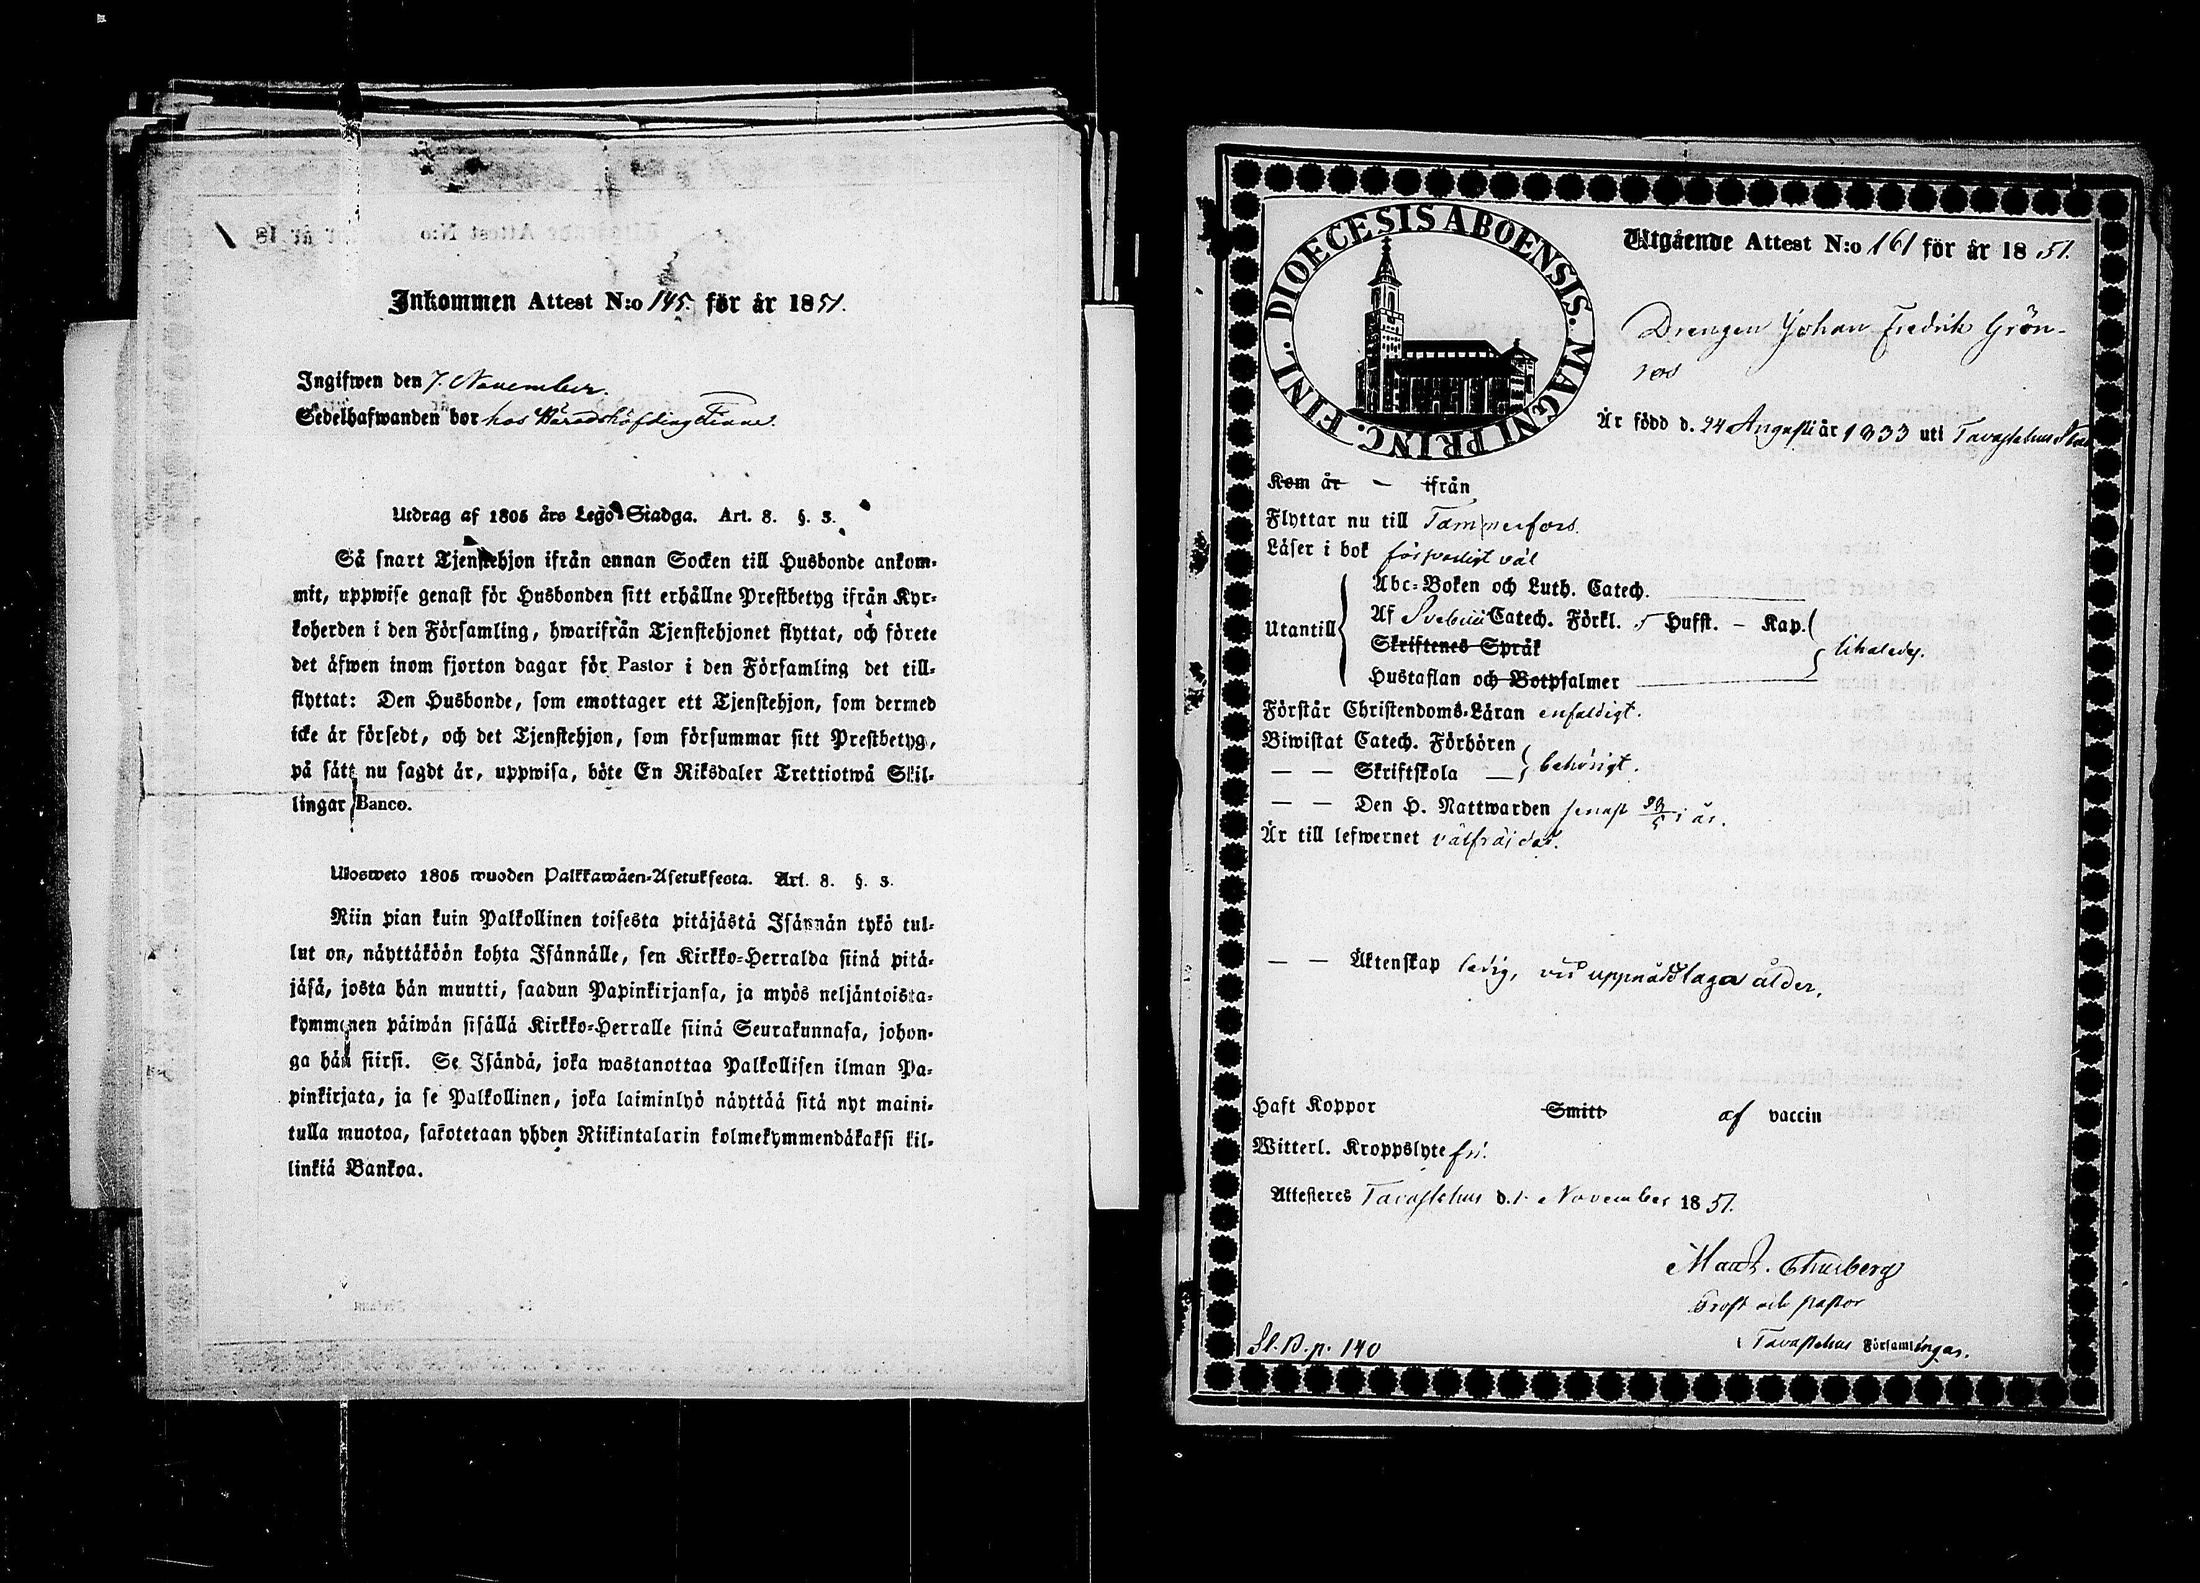 Inkommen Attest N:o 145. för år 1851.
Ingifwen den 7. November.
Sedelhafwanden bor hos Häradshöfding
Utdrag af 1805 års Lego-Stadga. Art. 8. §. 3.
Så snart Tjenstehjon ifrån annan Socken till Husbonde ankom-
mit, uppwise genast för Husbonden sitt erhållne Prestbetyg ifrån Kyr-
koherden i den Församling, hwarifrån Tjenstehjonet flyttat, och förete
det äfwen inom fjorton dagar för Pastor i den Församling det till-
flyttat: Den Husbonde, som emottager ett Tjenstehjon, som dermed
icke är försedt, och det Tjenstehjon, som försummar sitt Prestbetyg,
på sätt nu sagdt är, uppwisa, böte En Riksdaler Trettiotwå Skil-
lingar Banco.
Ulosweto 1805 wuoden Palkkawäen-Asetuksesta. Art. 8. §. 3.
Niin pian kuin Palkollinen toisesta pitäjästä Isännän tykö tul-
lut on, näyttäköön kohta Isännälle, sen Kirkko-Herralda siinä pitä-
jäsä, josta hän muutti, saadun Papinkirjansa, ja myös neljäntoista-
kymmenen päiwän sisällä Kirkko-Herralle siinä Seurakunnasa, johon-
ga hän siirsi. Se Isändä, joka wastanottaa Palkollisen ilman Pa-
pinkirjata, ja se Palkollinen, joka laiminlyö näyttää sitä nyt maini-
tulla muotoa, sakotetaan yhden Riikintalarin kolmekymmendäkaksi kil-
linkiä Bankoa.
DIOECESIS ABOENSIS. MAGNI PRINC. FINL.
Utgående Attest N:o 161 för år 1851.
Drengen Johan Fredrik Grön-
roos
Är född d. 24 Augusti år 1833 uti Tavastehus Stad
Kom år – ifrån
Flyttar nu till Tammerfors.
Läser i bok försvarligt väl
Abc-Boken och Luth. Catech.
Utantill Af Svebilii Catech. Förkl. 5 Hufst. – Kap. likaledes.
Skriftenes Språk
Hustaflan och Botpsalmer
Förstår Christendoms-Läran enfaldigt.
Biwistat Catech. Förhören
— — Skriftskola — behörigt.
— — Den H. Nattwarden senast i år.
Är till lefwernet välfräjdad.
— — Äktenskap ledig, vid uppnådd laga ålder.
Haft Koppor Smitt af vaccin
Witterl. Kroppslyte fri.
Attesteres Tavastehus d. 1 November 1851.
Thurberg
Prost och pastor
i Tavastehus Församlingar.
p. 140